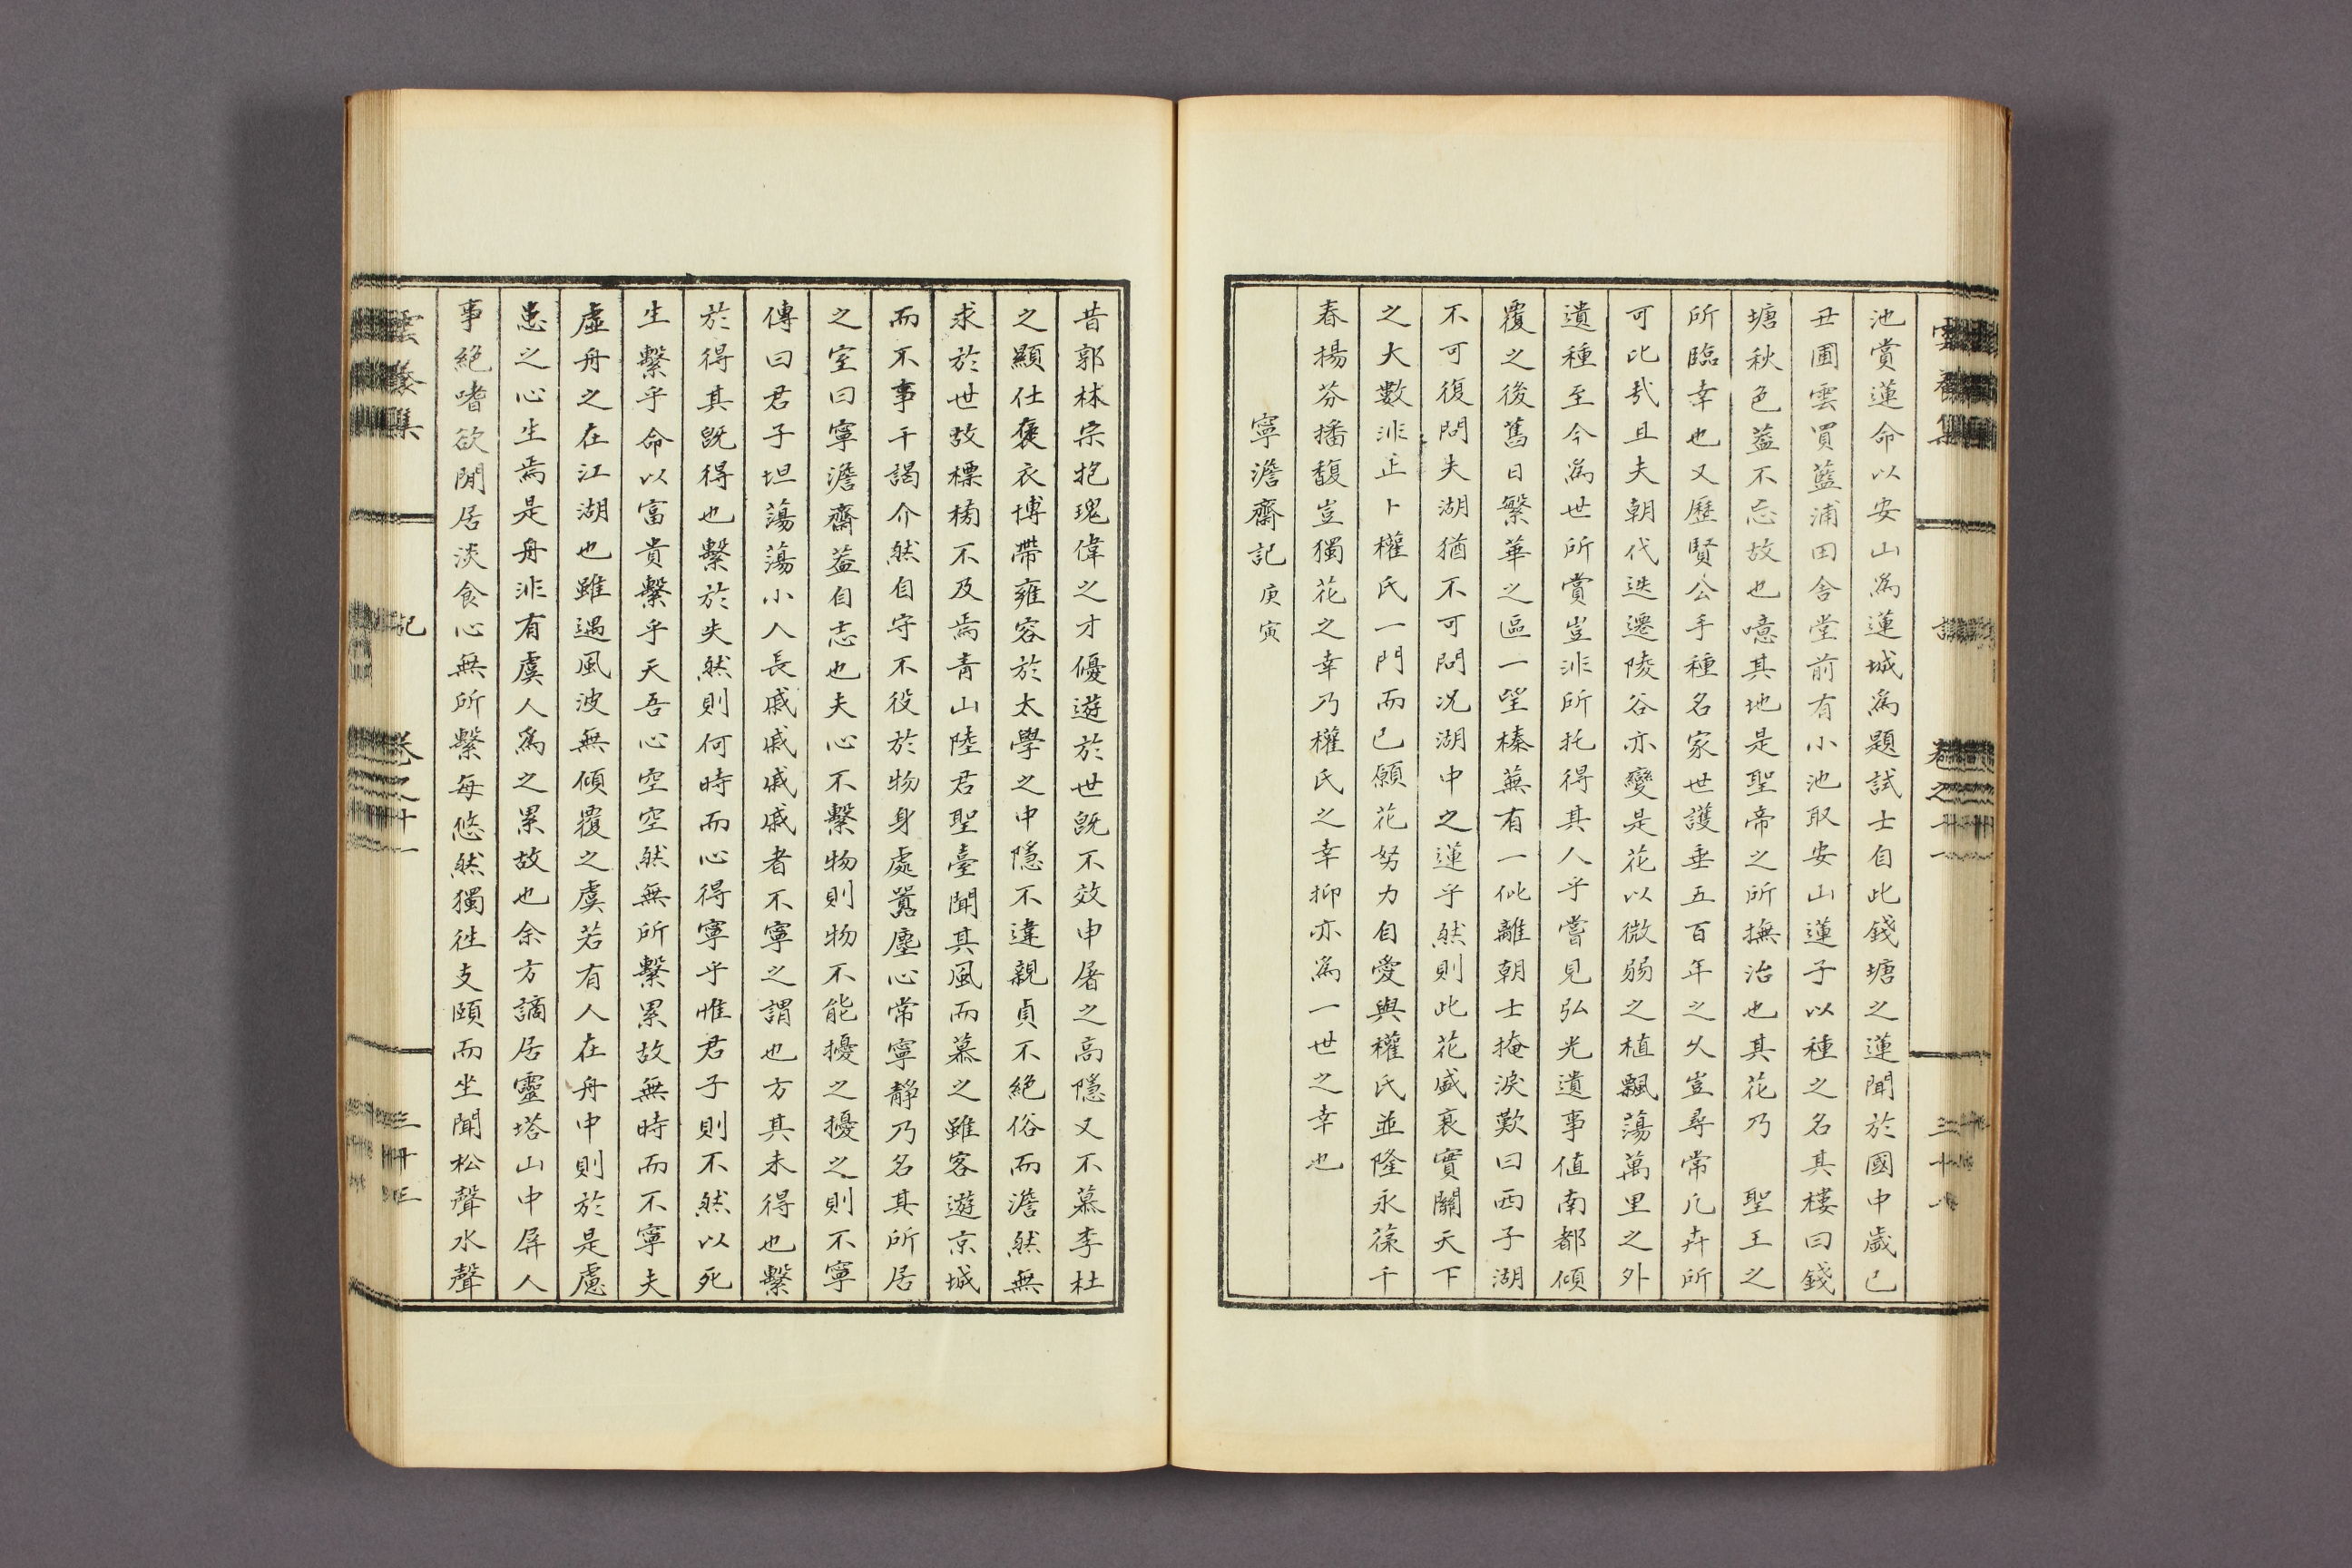 池賞蓮命以安山爲蓮城爲題試士自此錢塘之蓮聞於國中歲己
丑圃雲買藍浦田舍堂前有小池取安山蓮子以種之名其樓曰錢
塘秋色蓋不忘故也噫其地是聖帝之所撫治也其花乃 聖王之
所臨幸也又歷賢公手種名家世護垂五百年之久豈尋常凡卉所
可比㢤且夫朝代迭遷陵谷亦變是花以微弱之植飄蕩萬里之外
遺種至今爲世所賞豈非所托得其人乎嘗見弘光遺事値南都傾
覆之後舊日繁華之區一望榛蕪有一仳離朝士掩淚歎曰西子湖
不可復問夫湖猶不可問况湖中之蓮乎然則此花盛衰實關天下
之大數非止卜權氏一門而已願花努力自愛與權氏並隆永葆千
春揚芬播馥豈獨花之幸乃權氏之幸抑亦爲一世之幸也
寧澹齋記 庚寅
昔郭林宗抱瑰偉之才優遊於世旣不效申屠之高隱又不慕李杜
之顯仕褒衣博帶雍容於太學之中隱不違親貞不絕俗而澹然無
求於世故標榜不及焉靑山陸君聖臺聞其風而慕之雖客遊京城
而不事干謁介然自守不役於物身處嚣塵心常寧靜乃名其所居
之室曰寧澹齋蓋自志也夫心不繫物則物不能擾之擾之則不寧
傳曰君子坦蕩蕩小人長戚戚戚戚者不寧之謂也方其未得也繫
於得其旣得也繫於失然則何時而心得寧乎惟君子則不然以死
生繫乎命以富貴繫乎天吾心空空然無所繫累故無時而不寧夫
虛舟之在江湖也雖遇風波無傾覆之虞若有人在舟中則於是慮
患之心生焉是舟非有虞人爲之累故也余方謫居靈塔山中屏人
事絕嗜欲閒居淡食心無所繫每悠然獨徃支頤而坐聞松聲水聲
雲養集 記 卷之十一 三十三